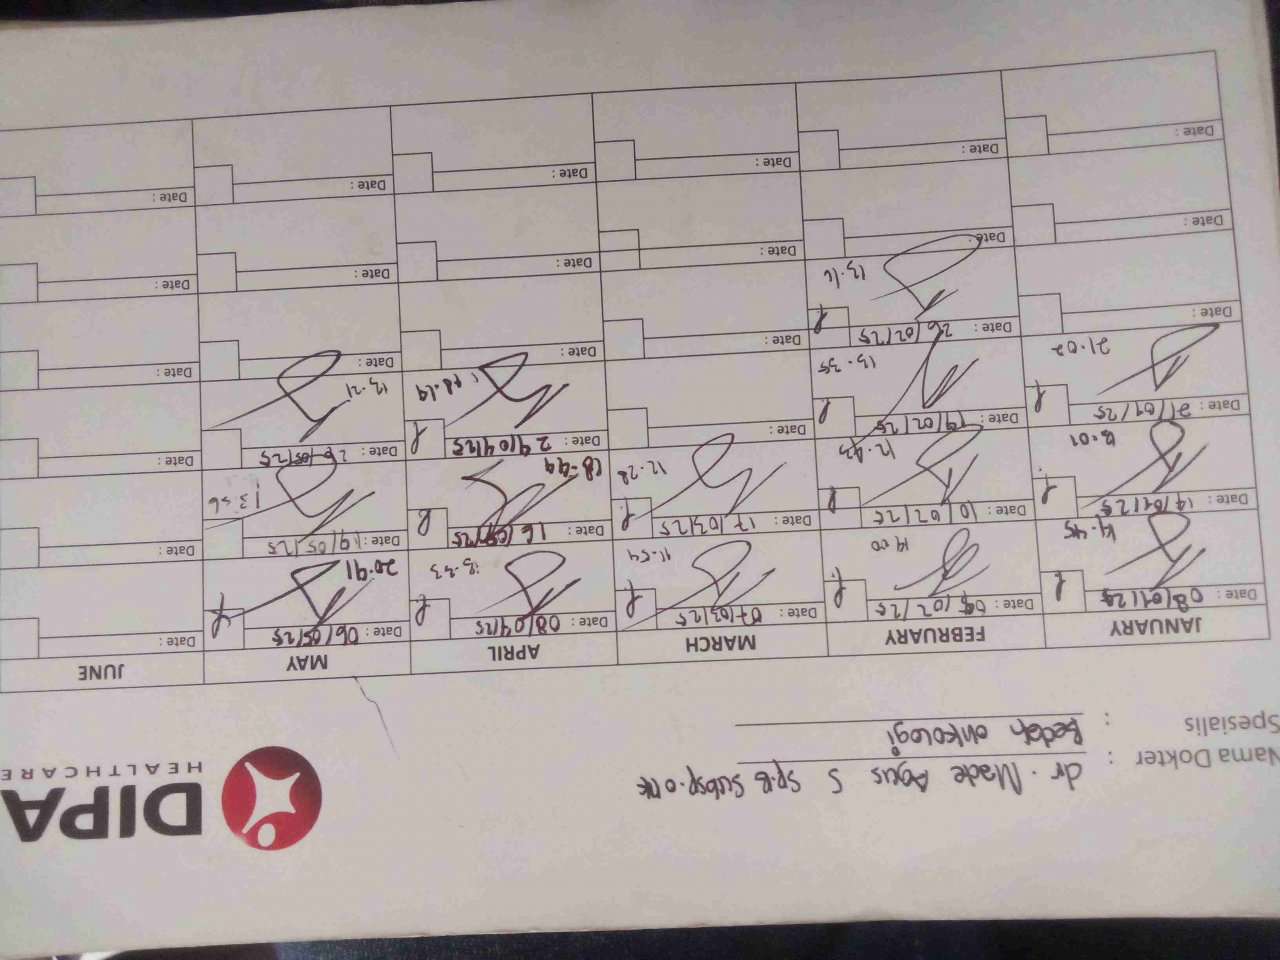 DIPA
HEALTHCARE
Nama Dokter : dr. Made Agus S Sp.B Subsp.onk
Spesialis : Bedah onkologi
JANUARY FEBRUARY MARCH APRIL MAY JUNE
Date: 08/01/25 Date: /02/25 Date: 07/03/25 Date: 08/04/25 Date: 06/05/25 Date:
14.45 14.00 11.54 13.33 20.41
Date: 14/01/25 Date: 10/02/25 Date: 17/03/25 Date: 16/ /25 Date: 19/05/25 Date:
13.01 12.43 12.28 18.44 13.56
Date: 21/01/25 Date: 19/02/25 Date: Date: 29/04/25 Date: 26/05/25 Date:
21.02 13.35 18.19 13.21
Date: Date: 26/02/25 Date: Date: Date: Date:
13.16
Date: Date: Date: Date: Date: Date:
Date: Date: Date: Date: Date: Date: